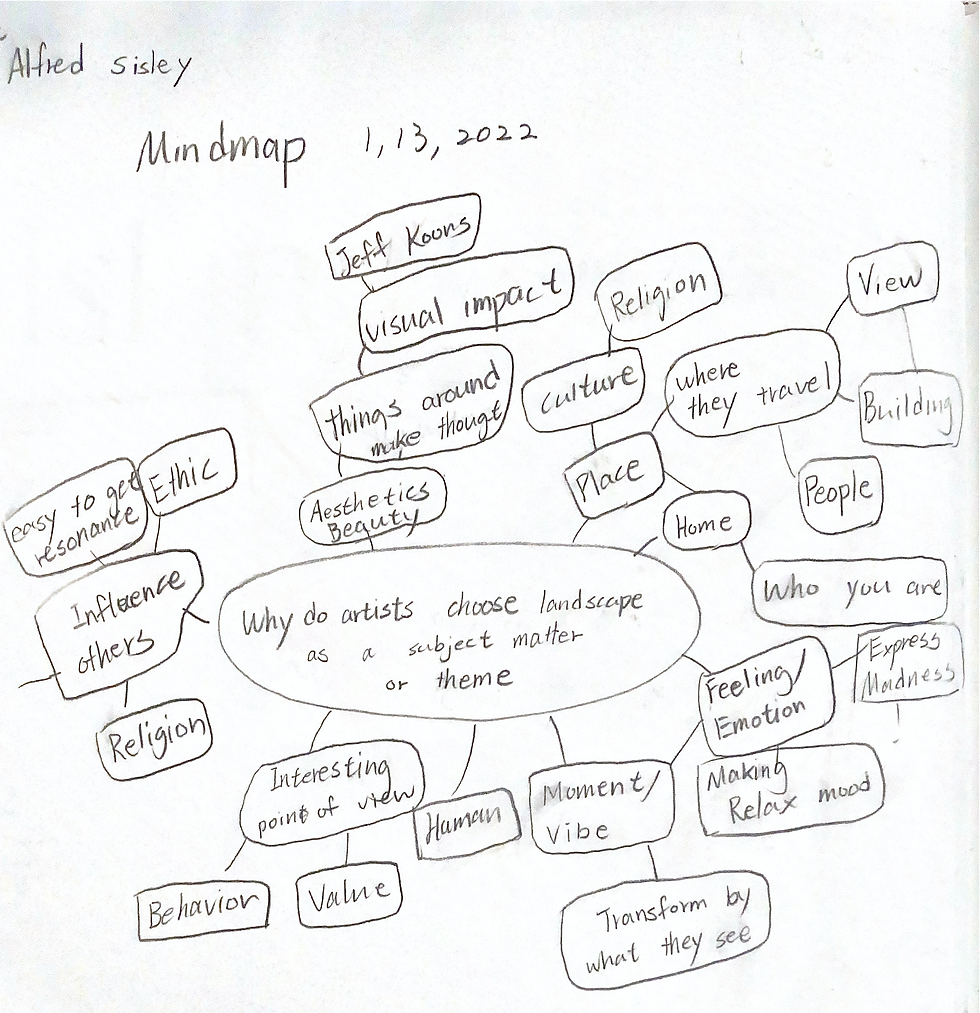 Alfred Sisley
Mindmap 1,13,2022
Jeff Koons
visual impact
things around
make thougt
Aesthetics
Beauty
Religion
culture
Place
where
they travel
View
Building
People
Home
Who you are
easy to get
resonance
Ethic
Influence
others
Religion
Why do artists choose landscape
as a subject matter
or theme
Feeling/
Emotion
Express
Madness
Making
Relax mood
Interesting
point of view
Human
Moment/
Vibe
Behavior
Value
Transform by
what they see